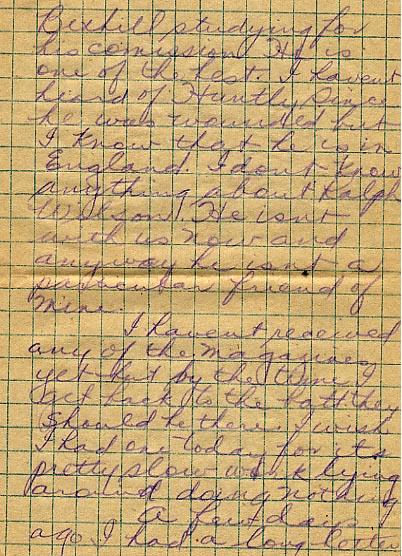 Bexhill studying for
his comission. He is
one of the best. I havent
heard of Huntly since
he was wounded but
I know that he is in
England. I dont know
anything about Ralph
Wilson. He isnt
with us now and
anyway he isnt a
particular friend of
mine.
I havent received
any of the magazines
yet but by the time I
get back to the batt they
should be there. I wish
I had one today for its
pretty slow work lying
around doing nothing
A few days
ago I had a long letter